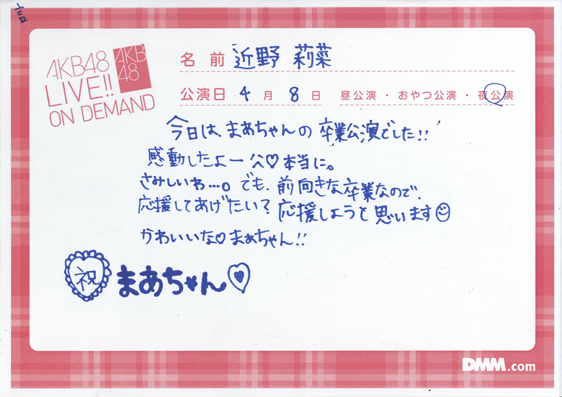 AKB48
LIVE!!
ON DEMAND
AKB
48
名前 近野 莉菜
公演日 4月8日 昼公演・おやつ公演・夜公演
今日は、まあちゃんの卒業公演でした!!
感動したよー ♡本当に。
さみしいわ…。でも、前向きな卒業なので、
応援してあげたい? 応援しようと思います
かわいいな♡まあちゃん!!
祝 まあちゃん♡
DMM.com